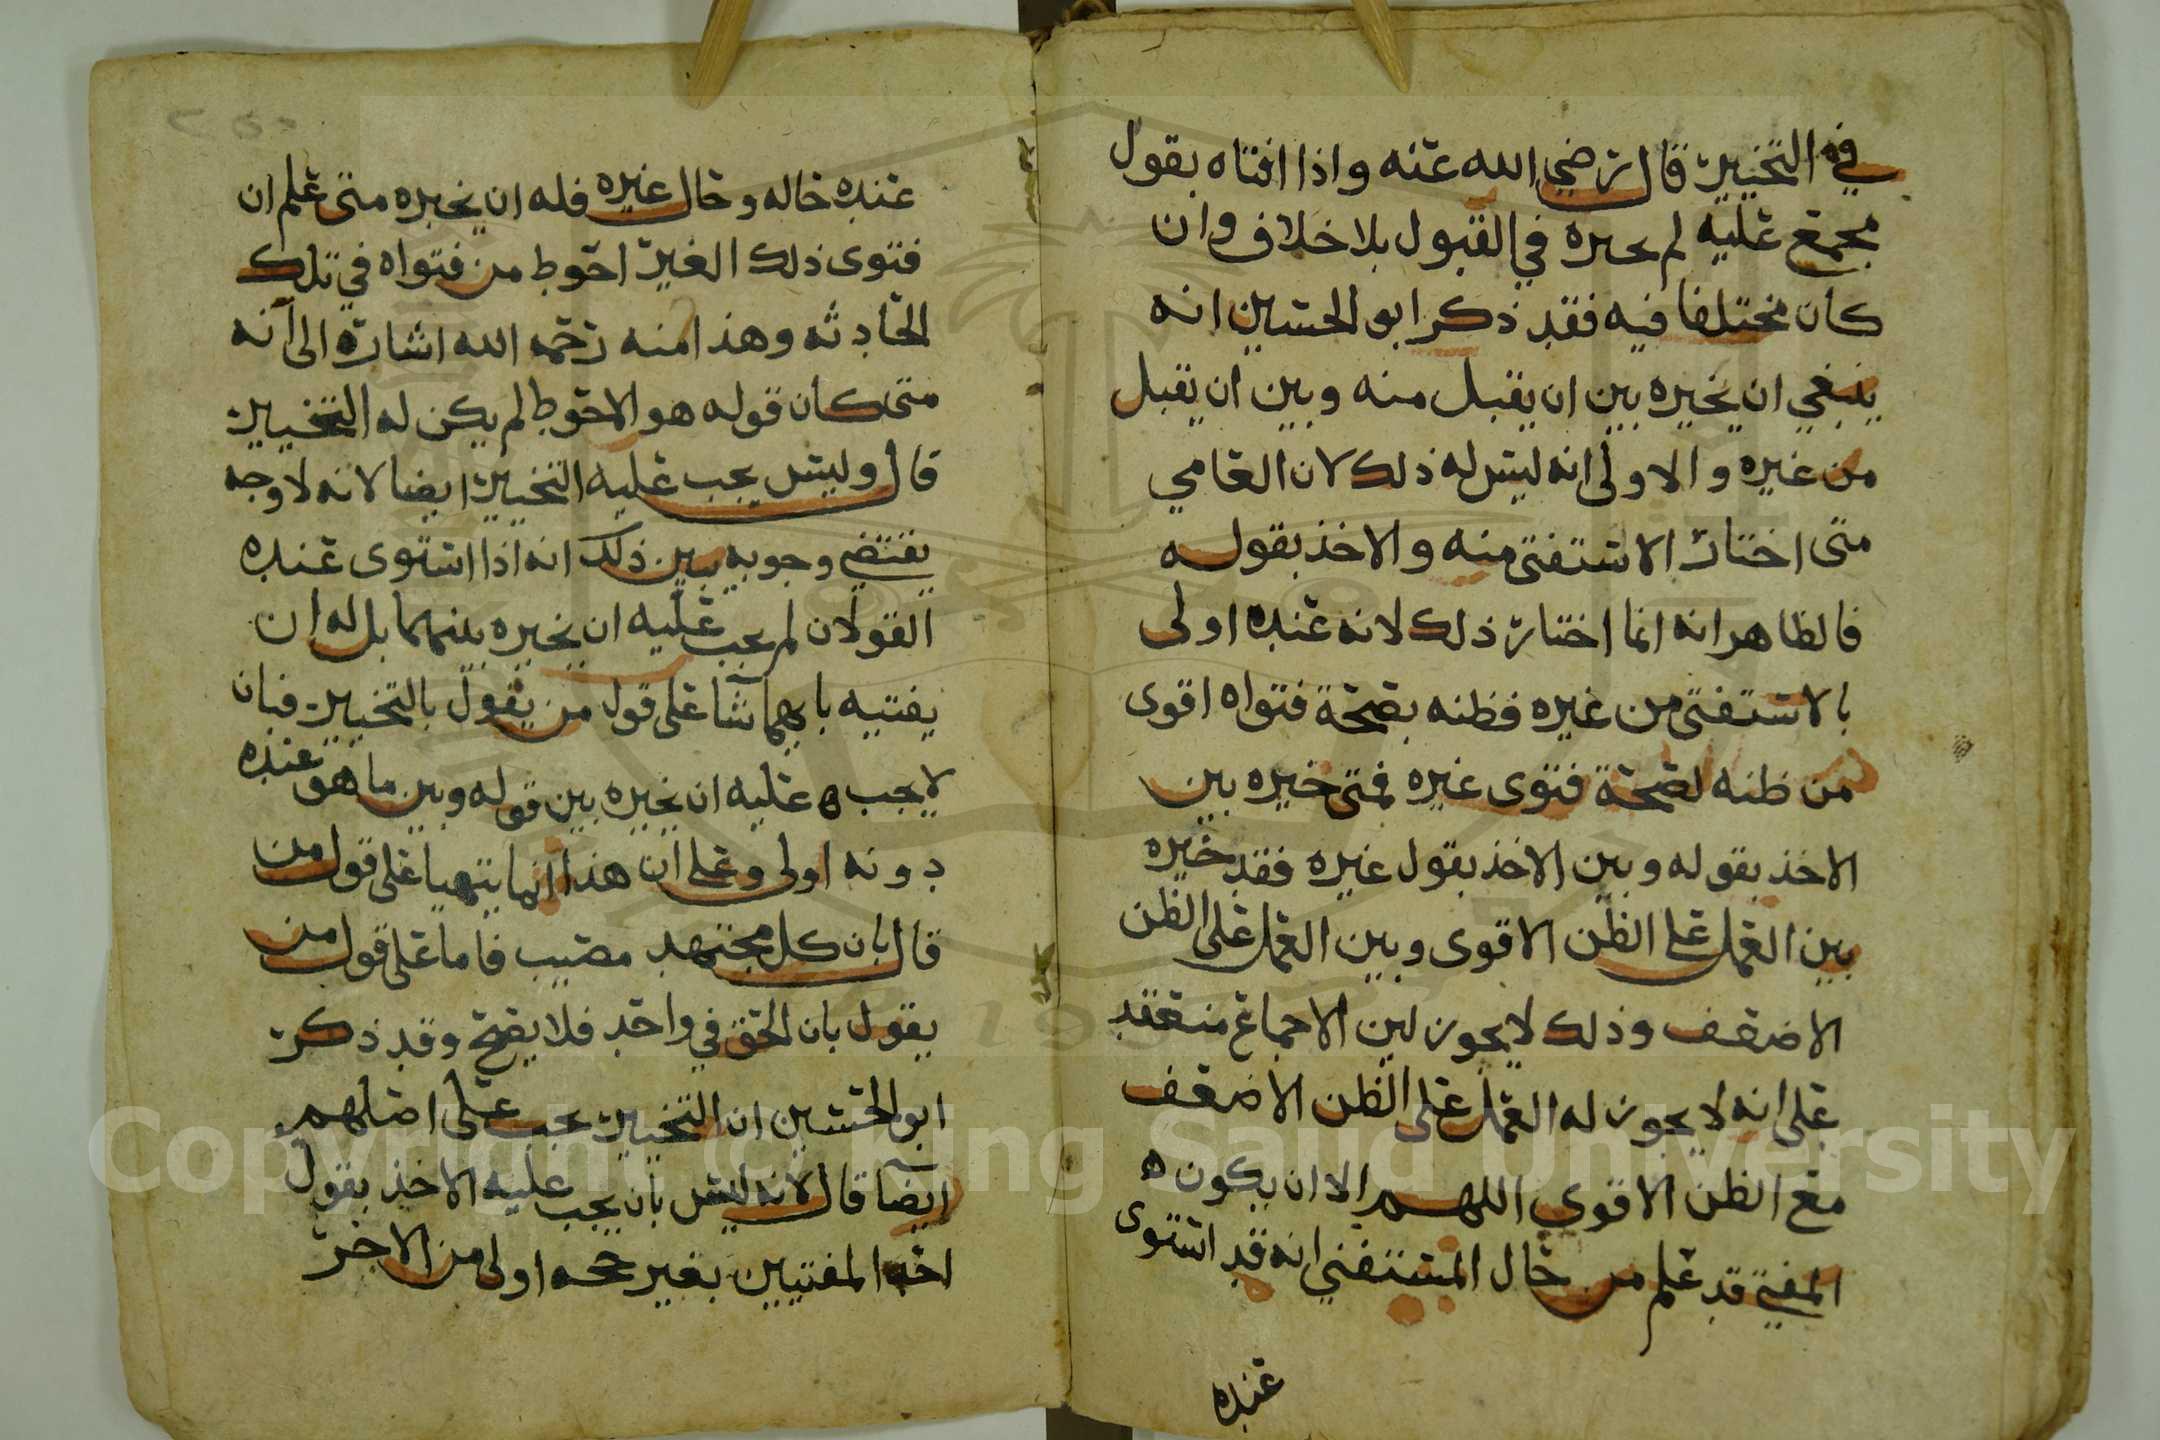 في التخيير قال رضي الله عنه واذا افتاه بقول
مجمع عليه لم يخيره في القبول بلا خلاف وان
كان مختلفا فيه فقد ذكر ابو الحسين انه
ينبغي ان يخيره بين ان يقبل منه وبين ان يقبل
من غيره والاولى انه ليس له ذلك لان العامي
متى اختار الاستفتى منه والاخذ بقوله
فالظاهر انه انما اختار ذلك لانه عنده اولى
بالاستفتى من غيره فظنه بصحة فتواه اقوى
من ظنه لصحة فتوى غيره فمتى خيره بين
الاخذ بقوله وبين الاخذ بقول غيره فقد خيره
بين العمل على الظن الاقوى وبين العمل على الظن
الاضعف وذلك لا يجوز لين الاجماع منعقد
على انه لا يجوز له العمل على الظن الاضعف
مع الظن الاقوى اللهم الا ان يكون ه
المفتي قد علم من حال المستفتي انه قد استوى
عنده
عنده حاله وحال غيره فله ان يخيره متى علم ان
فتوى ذلك الغير احوط من فتواه في تلك
الحادثه وهذا منه رحمه الله اشارة الى انه
متى كان قوله هو الاحوط لم يكن له التخيير
قال وليس يجب عليه التخيير ايضا لانه لا وجه
يقتضي وجوبه يبين ذلك انه اذا استوى عنده
القولان لم يجب عليه ان يخيره بينهما بل له ان
يفتيه بايهما شا على قول من يقول بالتخيير فبان
لا يجب ه عليه ان يخيره بين قوله وبين ما هو عنده
دونه اولى وعلى ان هذا انما يتهيا على قول من
قال بان كل مجتهد مصيب فاما على قول من
يقول بان الحق في واحد فلا يصح وقد ذكر
ابو الحسين ان التخيير يجب على اصلهم
ايضا قال لانه ليس بان يجب عليه الاخذ بقول
احد المفتيين بغير حجه اولى من الاخر
Copyright © King Saud University